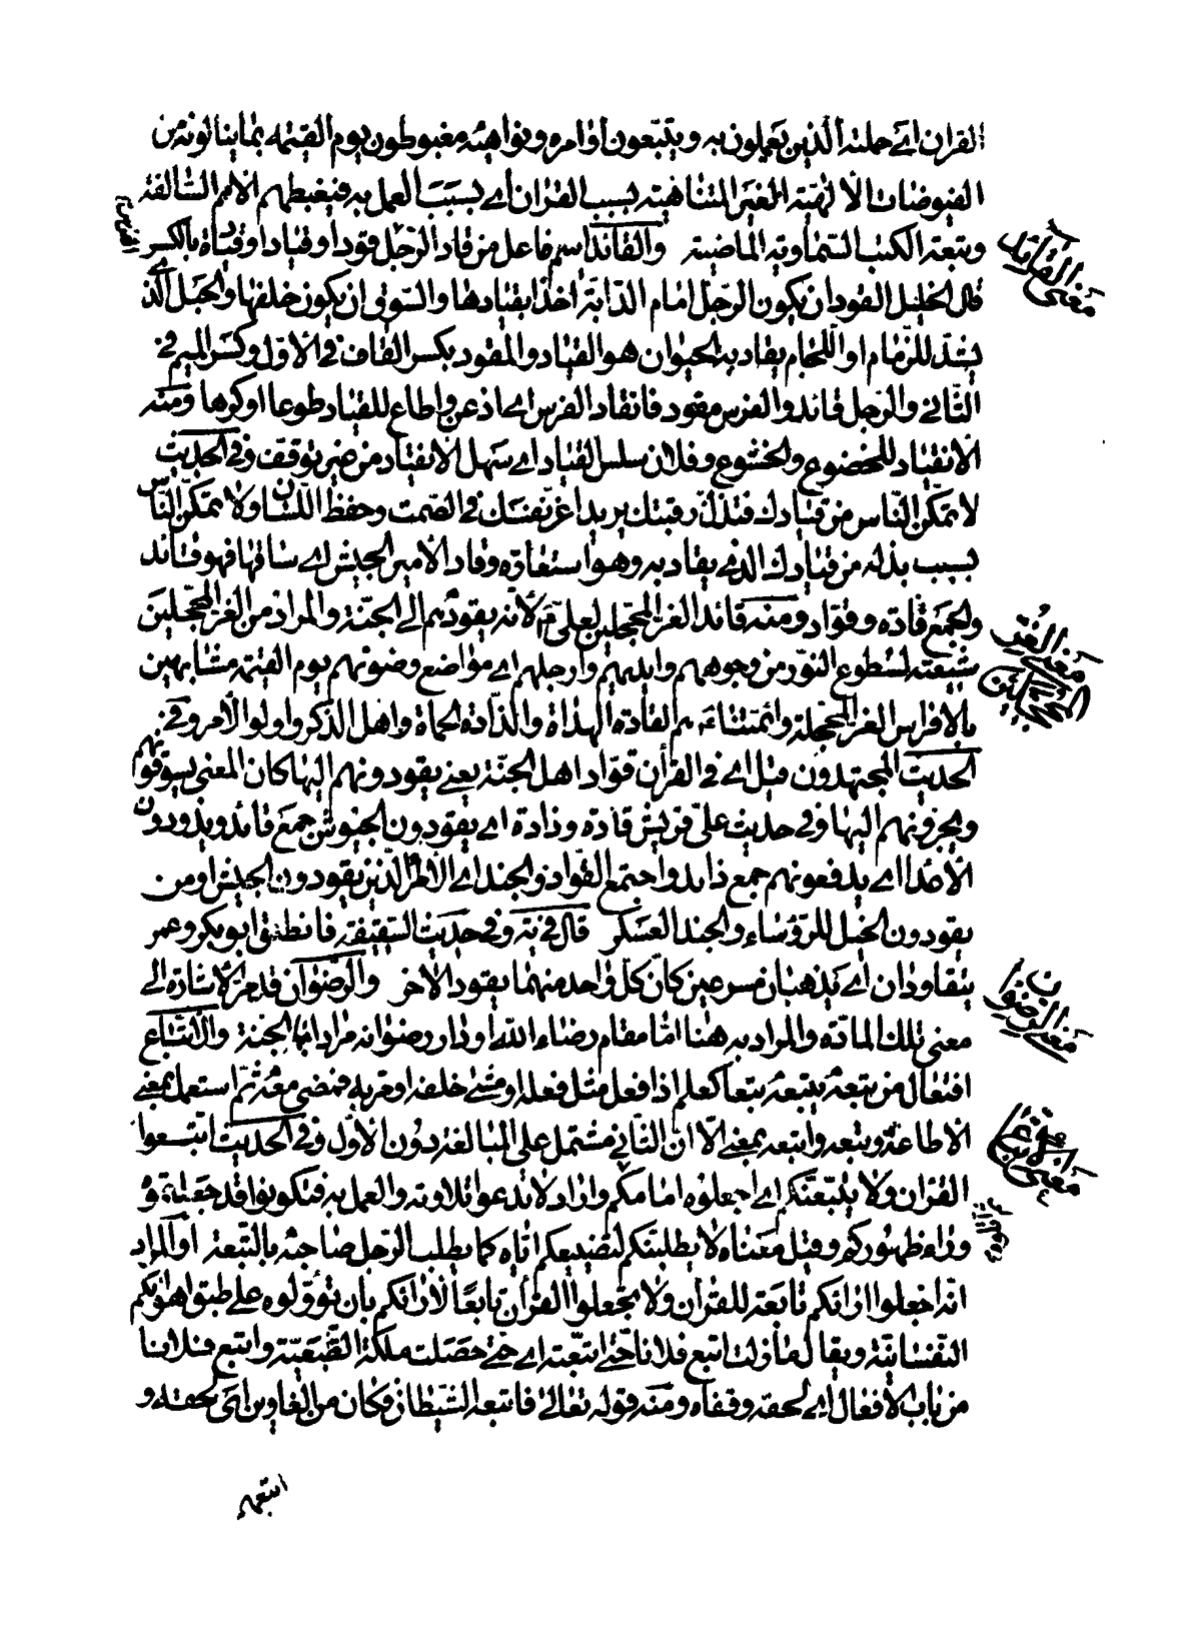 القرآن اى حملته الذين يعملون به ويتبعون أوامره ونواهيه مغبوطون يوم القيمه بما ينالونه من
الفيوضات الالهية الغير المتناهية بسبب القرآن اى بسبب العمل به فيغبطهم الامم السالفة
وتبعة الكتب السماوية الماضية والقائد اسم فاعل من قاد الرجل الفرس قودا وقيادا وقيادة بالكسر
قال الخليل القود ان يكون الرجل امام الدابة اخذا بقيادها والسوق ان يكون خلفها والحبل الذى
يشد للزمام او اللجام يقاد به الحيوان هو القياد والمقود بكسر القاف فى الاول وكسر الميم فى
الثانى والرجل قائد والفرس مقود فانقاد الفرس اى اذعن واطاع للقياد طوعا او كرها ومنه
الانقياد للخضوع والخشوع وفلان سلس القياد اى سهل الانقياد من غير توقف وفى الحديث
لا تمكن الناس من قيادك فتذل رقبتك يريد اعز نفسك فى الصمت وحفظ اللسان ولا تمكن الناس
بسبب بذله من قيادك الذى يقاد به وهو استعارة وقاد الامير الجيش اى ساقها فهو قائد
والجمع قادة وقواد ومنه قائد الغر المحجلين لعلى ع لانه يقودهم الى الجنة والمراد من الغر المحجلين
شيعته لسطوع النور من وجوههم وايديهم وارجلهم اى مواضع وضوئهم يوم القيمة مشابهين
بالافراس الغر المحجلة وائمتنا هم القادة الهداة والذادة الحماة واهل الذكر واولو الامر وفى
الحديث المجتهدون قيل اى فى القرآن قواد اهل الجنة يعنى يقودونهم اليها كان المعنى يسوقونهم
ويجرونهم اليها وفى حديث على قريش قادة وذادة اى يقودون الجيوش جمع قائد ويذودون
الاعداء اى يدفعونهم جمع ذايد واجتمع القواد والجند اى الامراء الذين يقودون الجيش او من
يقودون الخيل للرؤساء والجند العسكر قال فى يه وفى حديث السقيفة فانطلق ابو بكر وعمر
يتقاودان اى يذهبان مسرعين كان كل واحد منهما يقود الاخر والرضوان قد مر الاشارة الى
معنى تلك المادة والمراد به هنا اما مقام رضاء الله او دار رضوانه مرادا بها الجنة والاتباع
افتعال من تبعه يتبعه تبعا كعلم اذا فعل مثل فعله او مشى خلفه او مر به فمضى معه ثم استعمل بمعنى
الاطاعة وتبعه واتبعه بمعنى الا ان الثانى مشتمل على المبالغة دون الاول وفى الحديث اتبعوا
القرآن ولا يتبعنكم اى اجعلوه امامكم واراد لا تدعوا تلاوته والعمل به فتكونوا قد جعلتموه
وراء ظهوركم وقيل معناه لا يطلبنكم لتضييعكم اياه كما يطلب الرجل صاحبه بالتبعة او المراد
انه اجعلوا ارائكم تابعة للقرآن ولا تجعلوا القرآن تابعا لارائكم بان تؤولوه على طبق اهوائكم
النفسانية ويقال ما زلت اتبع فلانا حتى اتبعته اى حتى حصلت ملكة التبعية واتبع فلانا
من باب الافعال اى لحقه وقفاه ومنه قوله تعالى فاتبعه الشيطان فكان من الغاوين اى لحقه و
اتبعه
معنى القائد
معنى الغر
المحجلين
معنى الرضوان
معنى الاتباع